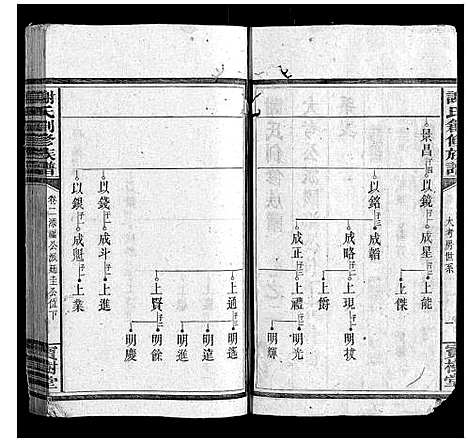 謝氏創修族譜
大考房世系
一
寶樹堂
景昌
以鏡
成星
上能
上傑
以銘
成韜
成略
上現
明拔
上爵
成正
上禮
明光
明輝
上通
明遙
明達
明進
上賢
明餘
明慶
以錢
成斗
上進
以銀
成魁
上業
謝氏創修族譜
卷二
公派廷圭公位下
寶樹堂